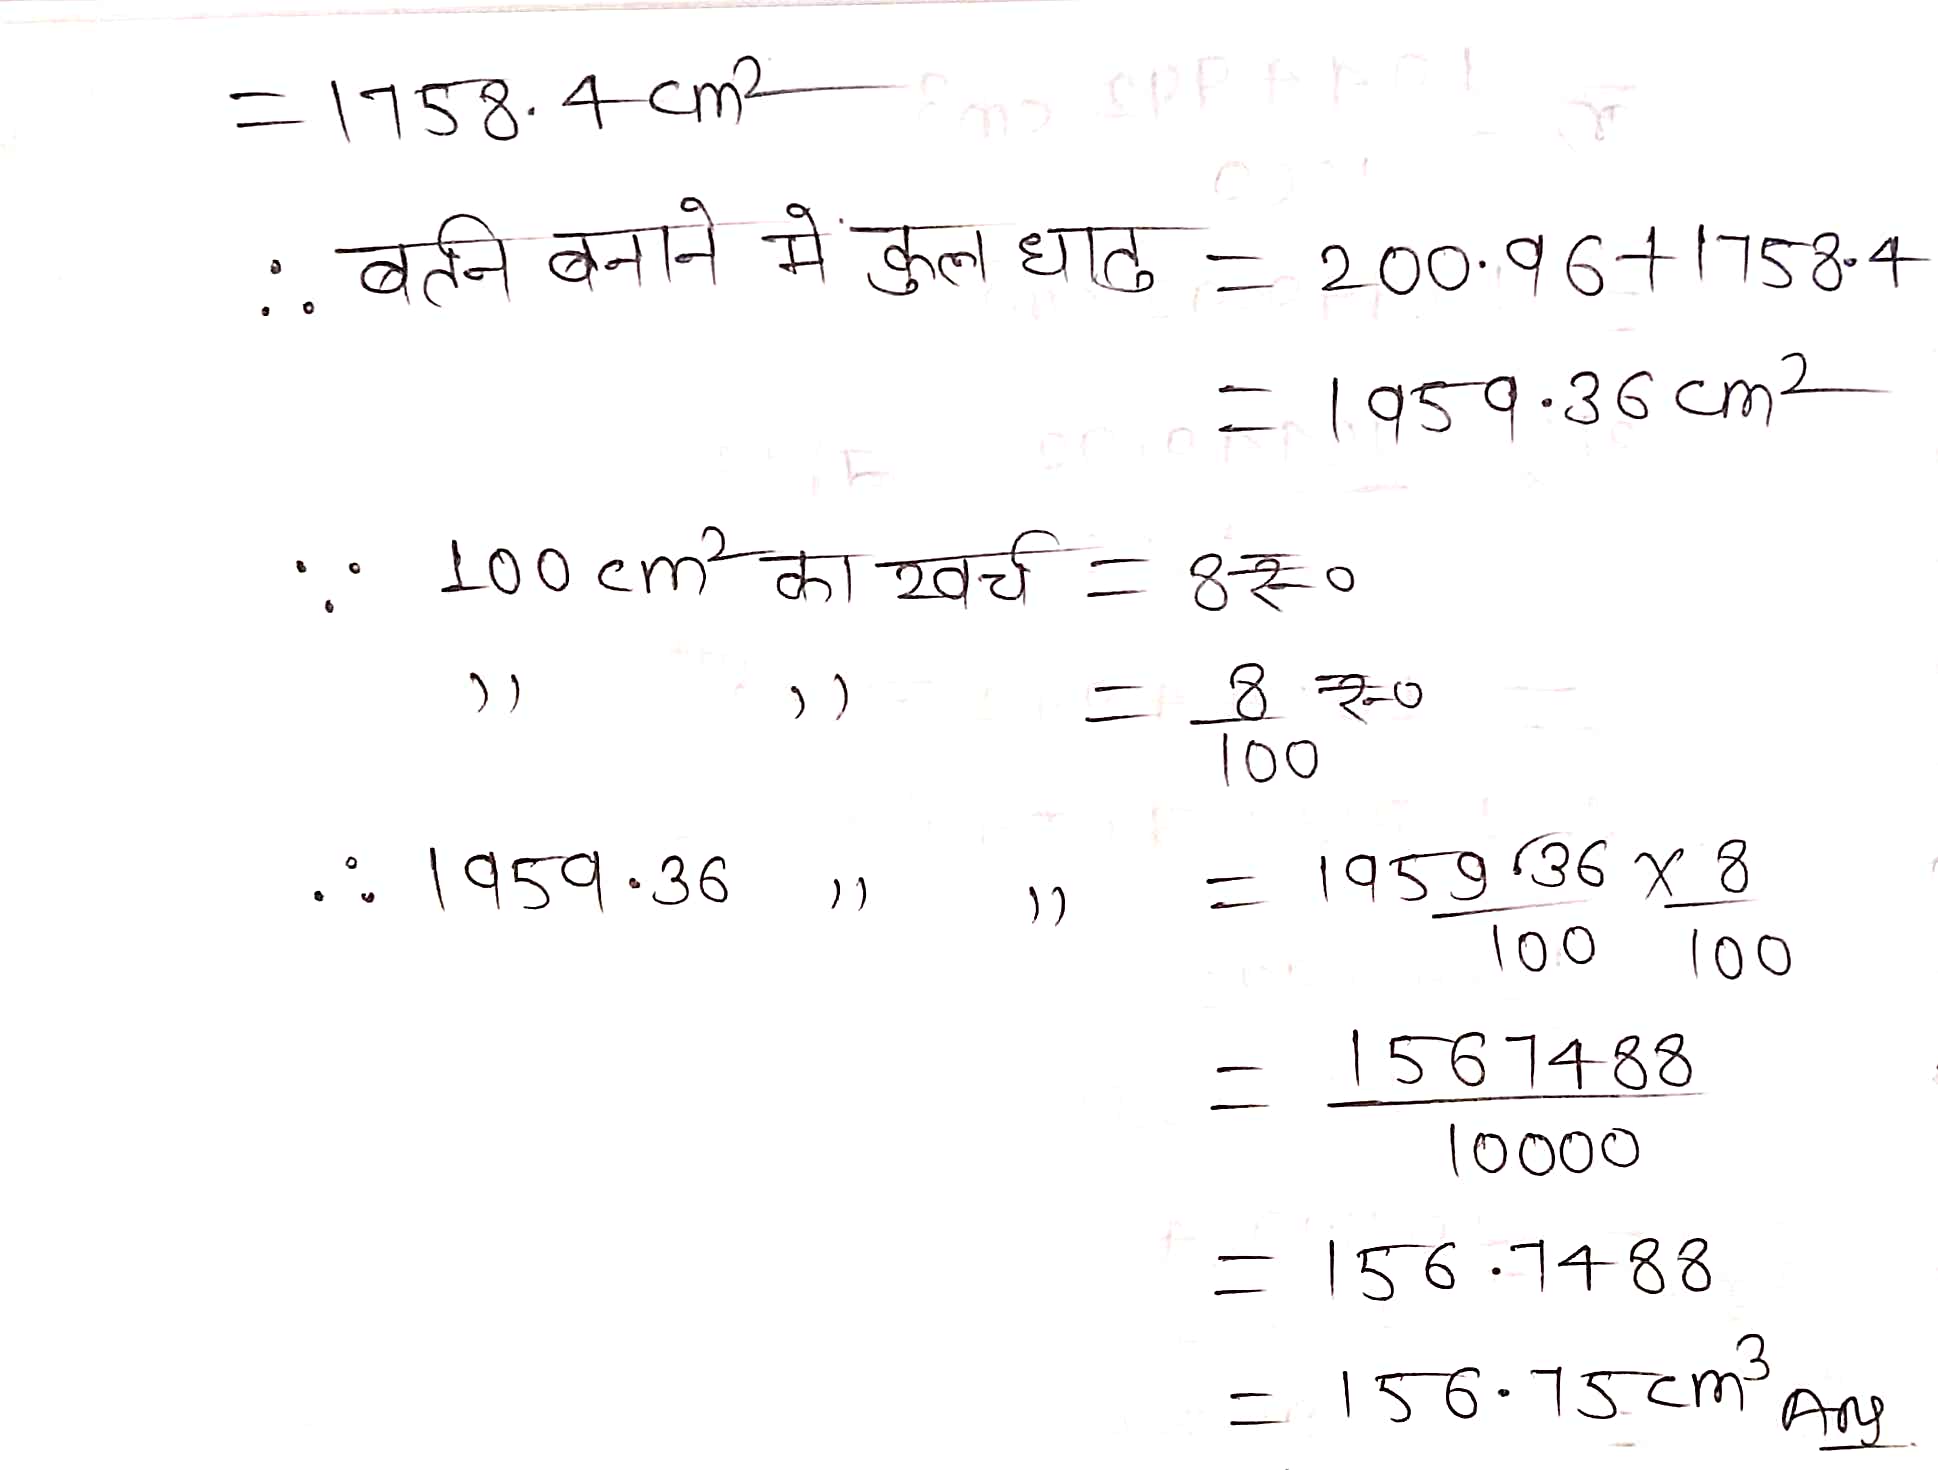 = 1758.4 cm²
∴ बर्तन बनाने में कुल धातु = 200.96 + 1758.4
= 1959.36 cm²
∵ 100 cm² का खर्च = 8 रु०
,, ,, = 8/100 रु०
∴ 1959.36 ,, ,, = 195936/100 × 8/100
= 1567488/10000
= 156.7488
= 156.75 cm³ Ans